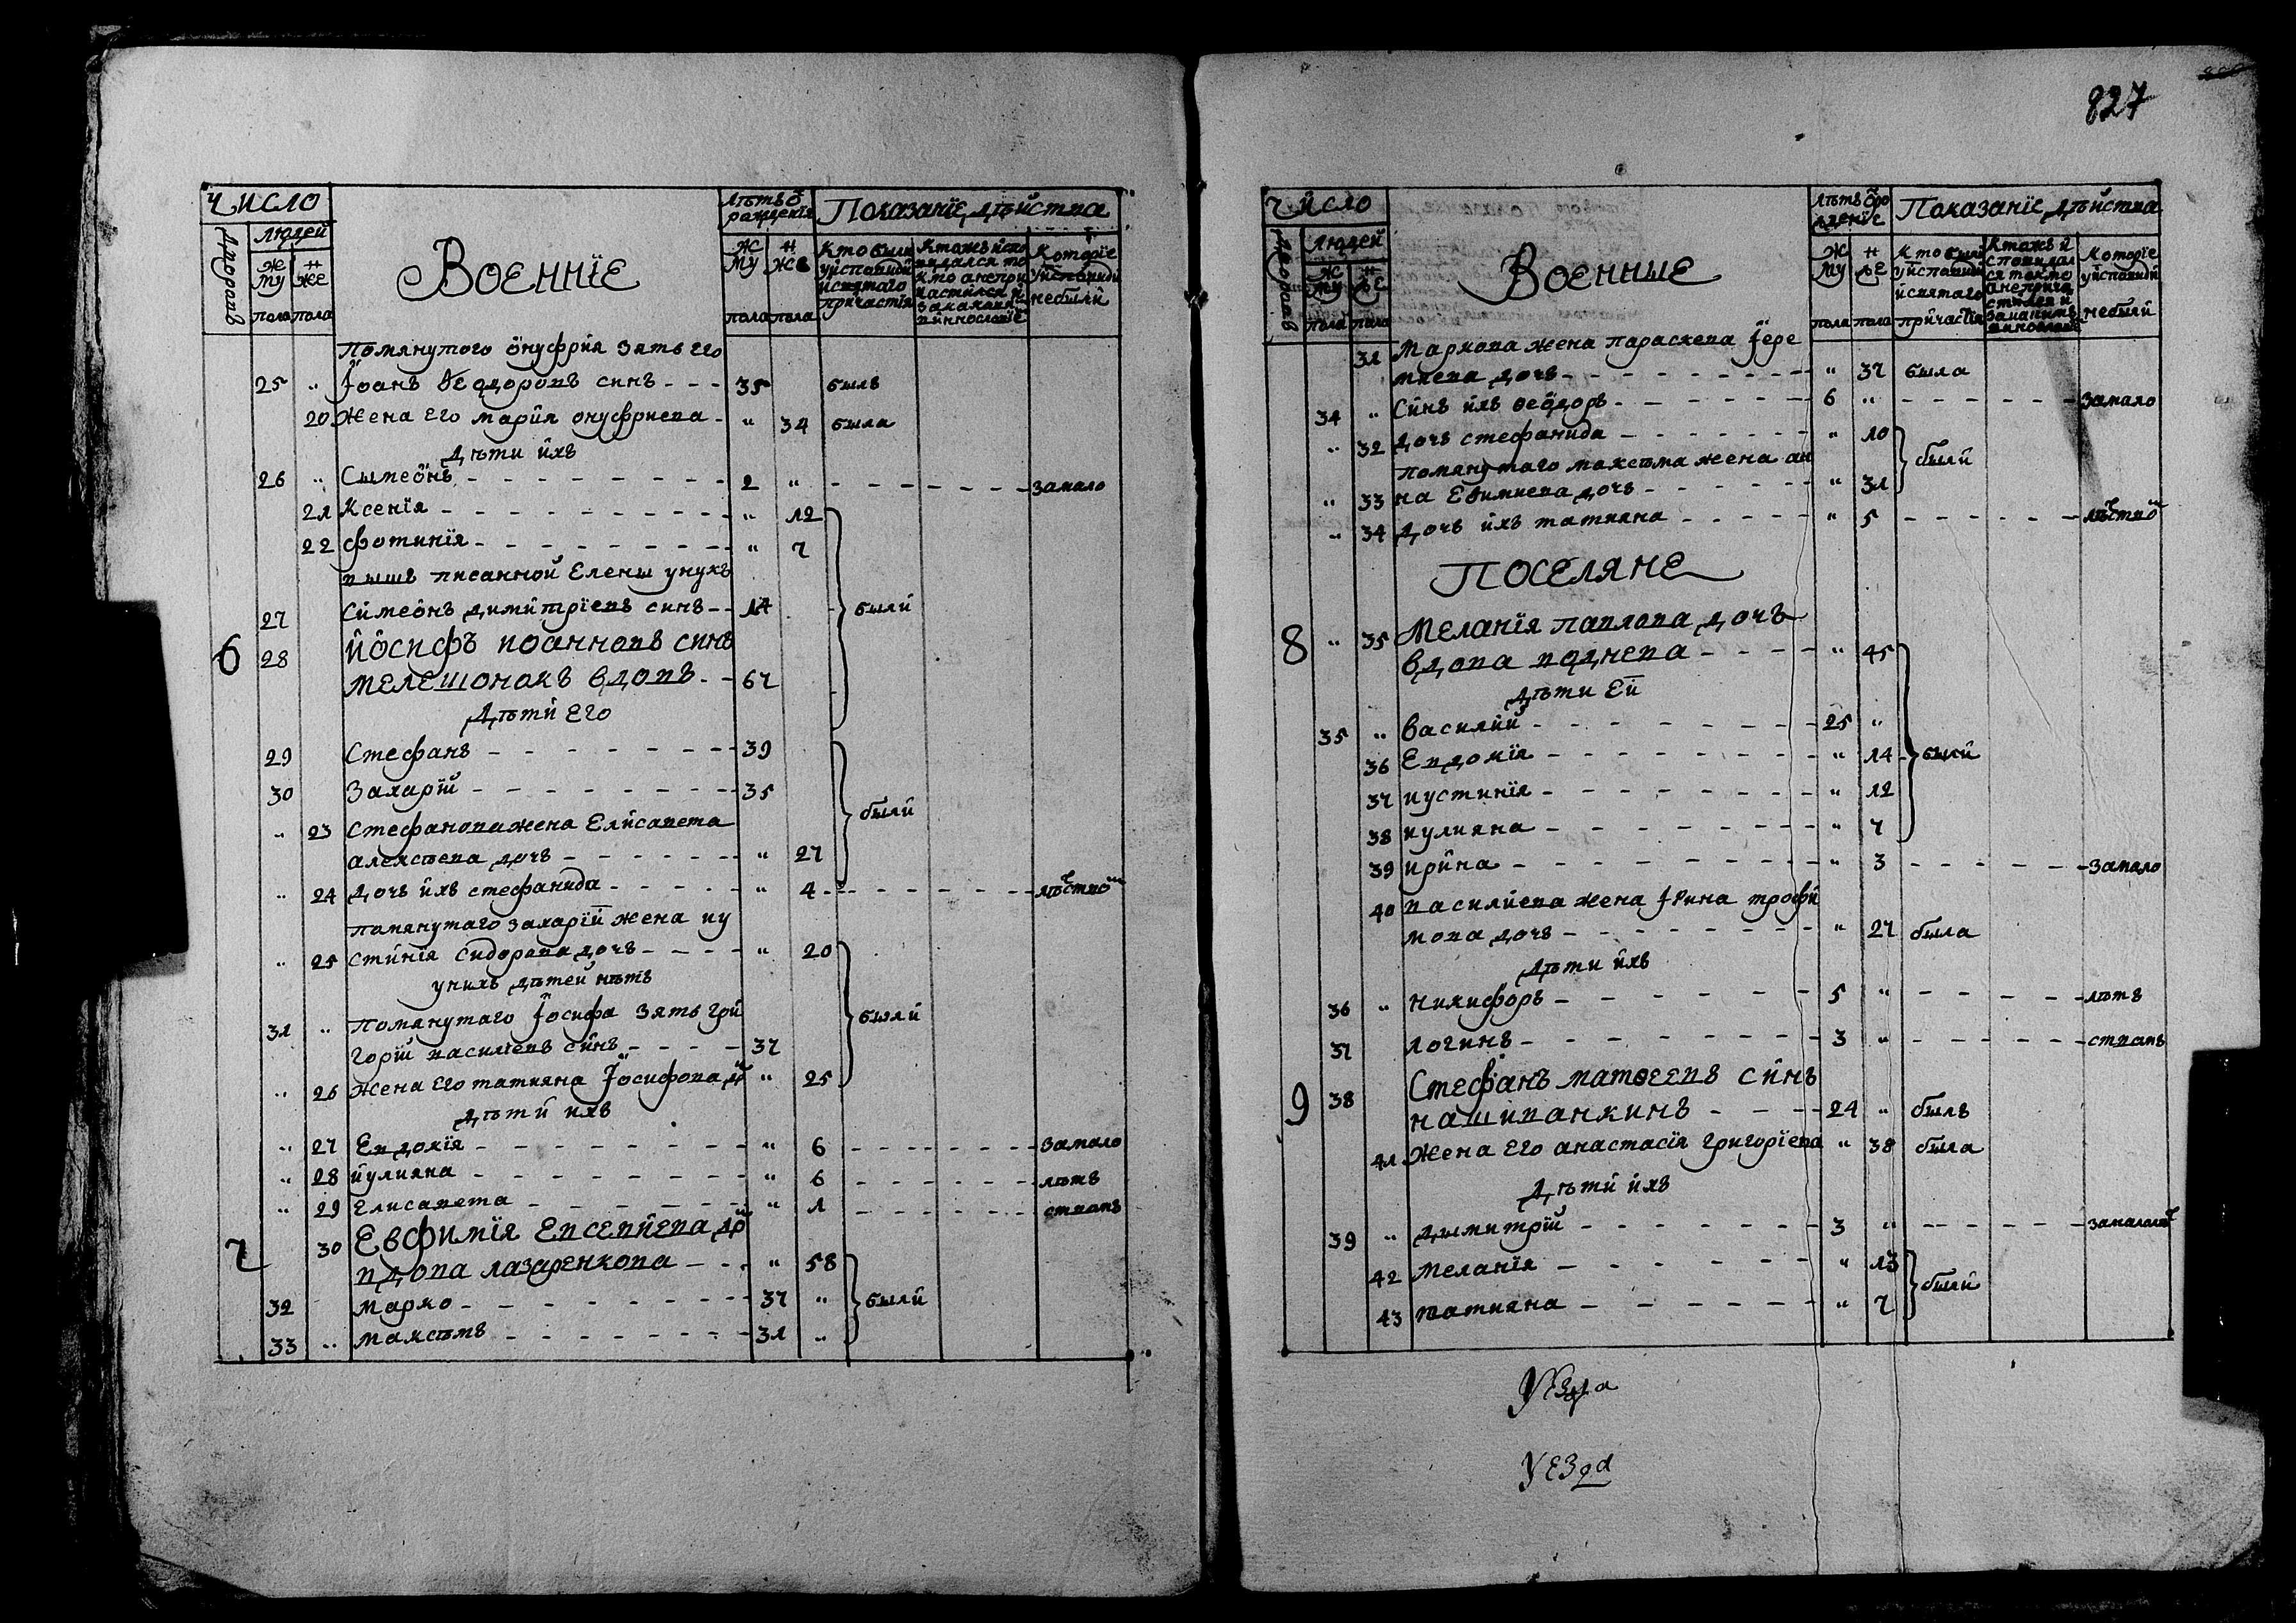 Число
Дворовъ
людей
муж
жен
пола
пола
Военніе
лѣтъ ѿ рожденія
муж
жен
пола
пола
Показаніе дѣйства
Кто были у исповѣди и святаго причастія
Которіе у исповѣди небыли
Помянутого Онуфрія зять его
25 " Іоанъ Ѳеодоровъ синъ - - - 35 былъ
20 Жена его Марія Онуфриева - " 34 была
Дѣти ихъ
26 " Сымеонъ - - - 2 " - - - замало
21 Ксенія - - - " 12
22 Фотинія - - - " 7
вышъ писанной Елены унукъ
27 Симеонъ Димитріевъ синъ - - 17 были
6 28 Иосифъ Иоанновъ синъ
Мелешонокъ вдовъ - - 67
Дѣти его
29 Стефанъ - - - 39
30 Захарій - - - 35
" 23 Стефанова жена Елисавета
Алексѣева дочъ - - - " 27 были
" 24 Дочъ ихъ Стефанида - - - " 4 - - - лѣтство
помянутаго Захарій жена иу
" 25 стинія Сидорова дочъ - - - " 20
унихъ дѣтей нѣтъ
31 " Помянутаго Іосифа зять Гри
горій Василіевъ синъ - - - 37 были
" 26 Жена его Татияна Іосифова д " 25
Дѣти ихъ
" 27 Евдокія - - - " 6 - - - замало
" 28 Иулияна - - - " 6 - - - лѣтъ
" 29 Елисавета - - - " 1 - - - ствовъ
7 30 Евфимія Евсевиева до
вдова Лазаренкова - - - " 58
32 Марко - - - 37 " были
33 " Максѣмъ - - - 31 "
827
Число
Дворовъ
людей
муж
же
пола
пола
Военные
лѣтъ ѿ рождение
му
же
пола
пола
Показаніе дѣйства
Кто были у исповѣди и святаго причастія
Которіе у исповѣди небыли
31 Маркова жена Параскева Іере
миева дочъ - - - " 37 была
34 " Синъ ихъ Ѳеодоръ - - - 6 " - - - замало
" 32 Дочъ Стефанида - - - " 10
помянутаго Максѣма жена Ан были
" 33 на Евимиева дочъ - - - " 31
" 34 Дочъ ихъ Татияна - - - " 5 - - - лѣтство
Поселяне
8 " 35 Меланія Павлова дочъ
вдова - - - " 45
Дѣти ей
35 " Василий - - - 25 "
36 Евдокія - - - " 14 были
37 Иустинія - - - " 12
38 Иулияна - - - " 7
39 Ирина - - - " 3 - - - замало
40 Василиева жена Ірина Трофи
мова дочъ - - - " 27 была
Дѣти ихъ
36 " Никифоръ - - - 5 " - - - лѣтъ
37 Логинъ - - - 3 " - - - ствавъ
9 38 Стефанъ Матѳеевъ синъ
Нашиванкинъ - - - 24 " былъ
41 Жена его Анастасія Григоріева " 38 была
Дѣти ихъ
39 " Дымитрій - - - 3 " - - - замалолѣт
42 Меланія - - - " 13
43 Татияна - - - " 7 были
Уезда
Уезда